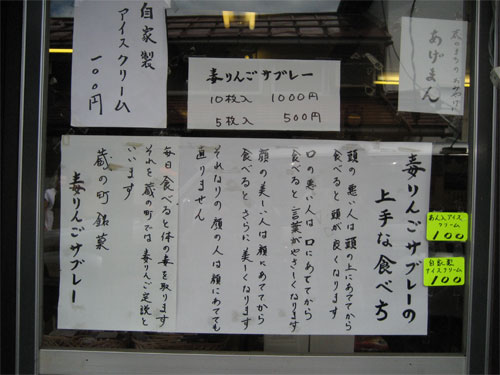 自家製
アイスクリーム
一〇〇円
毒りんごサブレー
10枚入 1000円
5枚入 500円
あげまん
毒りんごサブレーの
上手な食べち
頭の悪い人は頭の上にあててから
食べると頭が良くなります
口の悪い人は口にあててから
食べると言葉がやさしくなります
顔の美しい人は顔にあててから
食べるとさらに美しくなります
それなりの顔の人は顔にあてても
直りません
毎日食べると体の毒を取ります
それを蔵の町では毒りんご定説と
いいます
蔵の町銘菓
毒りんごサブレー
あん入アイス
クリーム
100
自家製
アイスクリーム
100